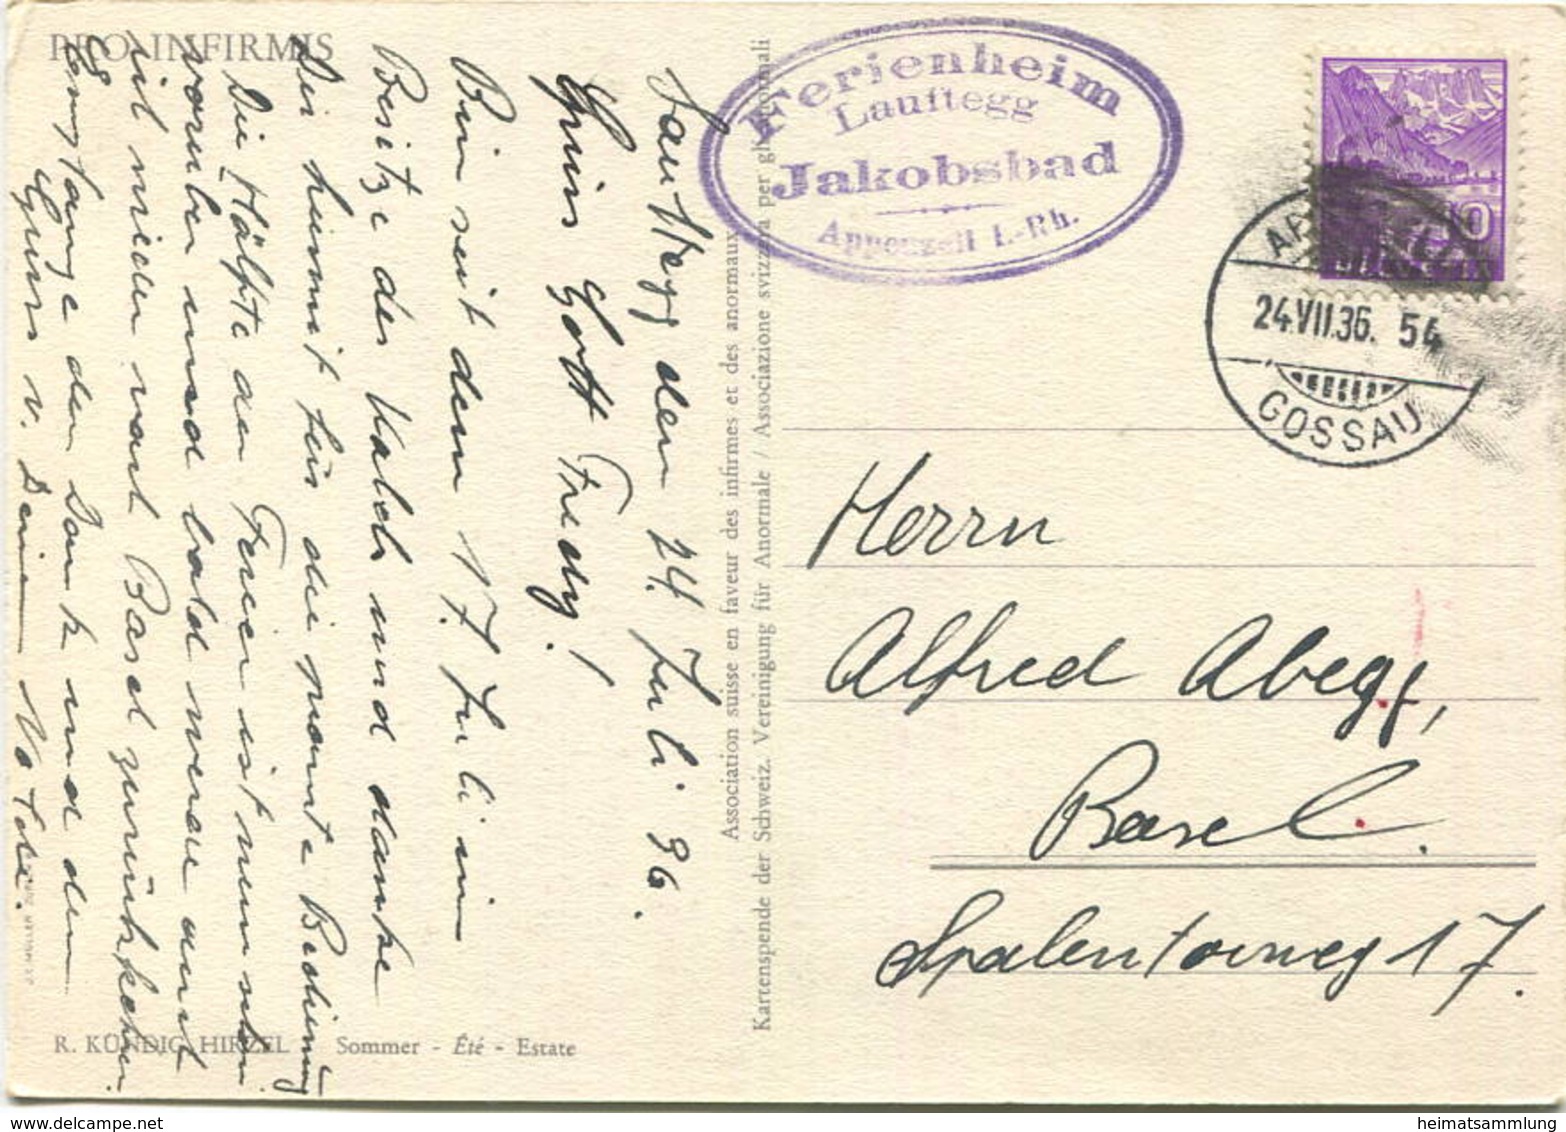 PRO INFIRMIS
Lauftegg den 24. Juli 36.
Grüss Gott Fredy!
Bin seit dem 17. Juli im
Besitze der und danke
Dir hiermit für die prompte Bedienung
Die Hälfte der Ferien ist nun schon
vorüber und bald werden auch
wir wieder nach Basel zurückkehren.
Empfange den Dank und den
Gruss v. Deinem
R. KÜNDIG, HIRZEL Sommer - Été - Estate
Association suisse en faveur des infirmes et des anormaux
Kartenspende der Schweiz. Vereinigung für Anormale / Associazione svizzera per gli anormali
Ferienheim
Lauftegg
Jakobsbad
Appenzell I.-Rh.
10
HELVETIA
24.VII.36. 54
GOSSAU
Herrn
Alfred Abegg,
Basel.
Spalentorweg 17.
heimatsammlung